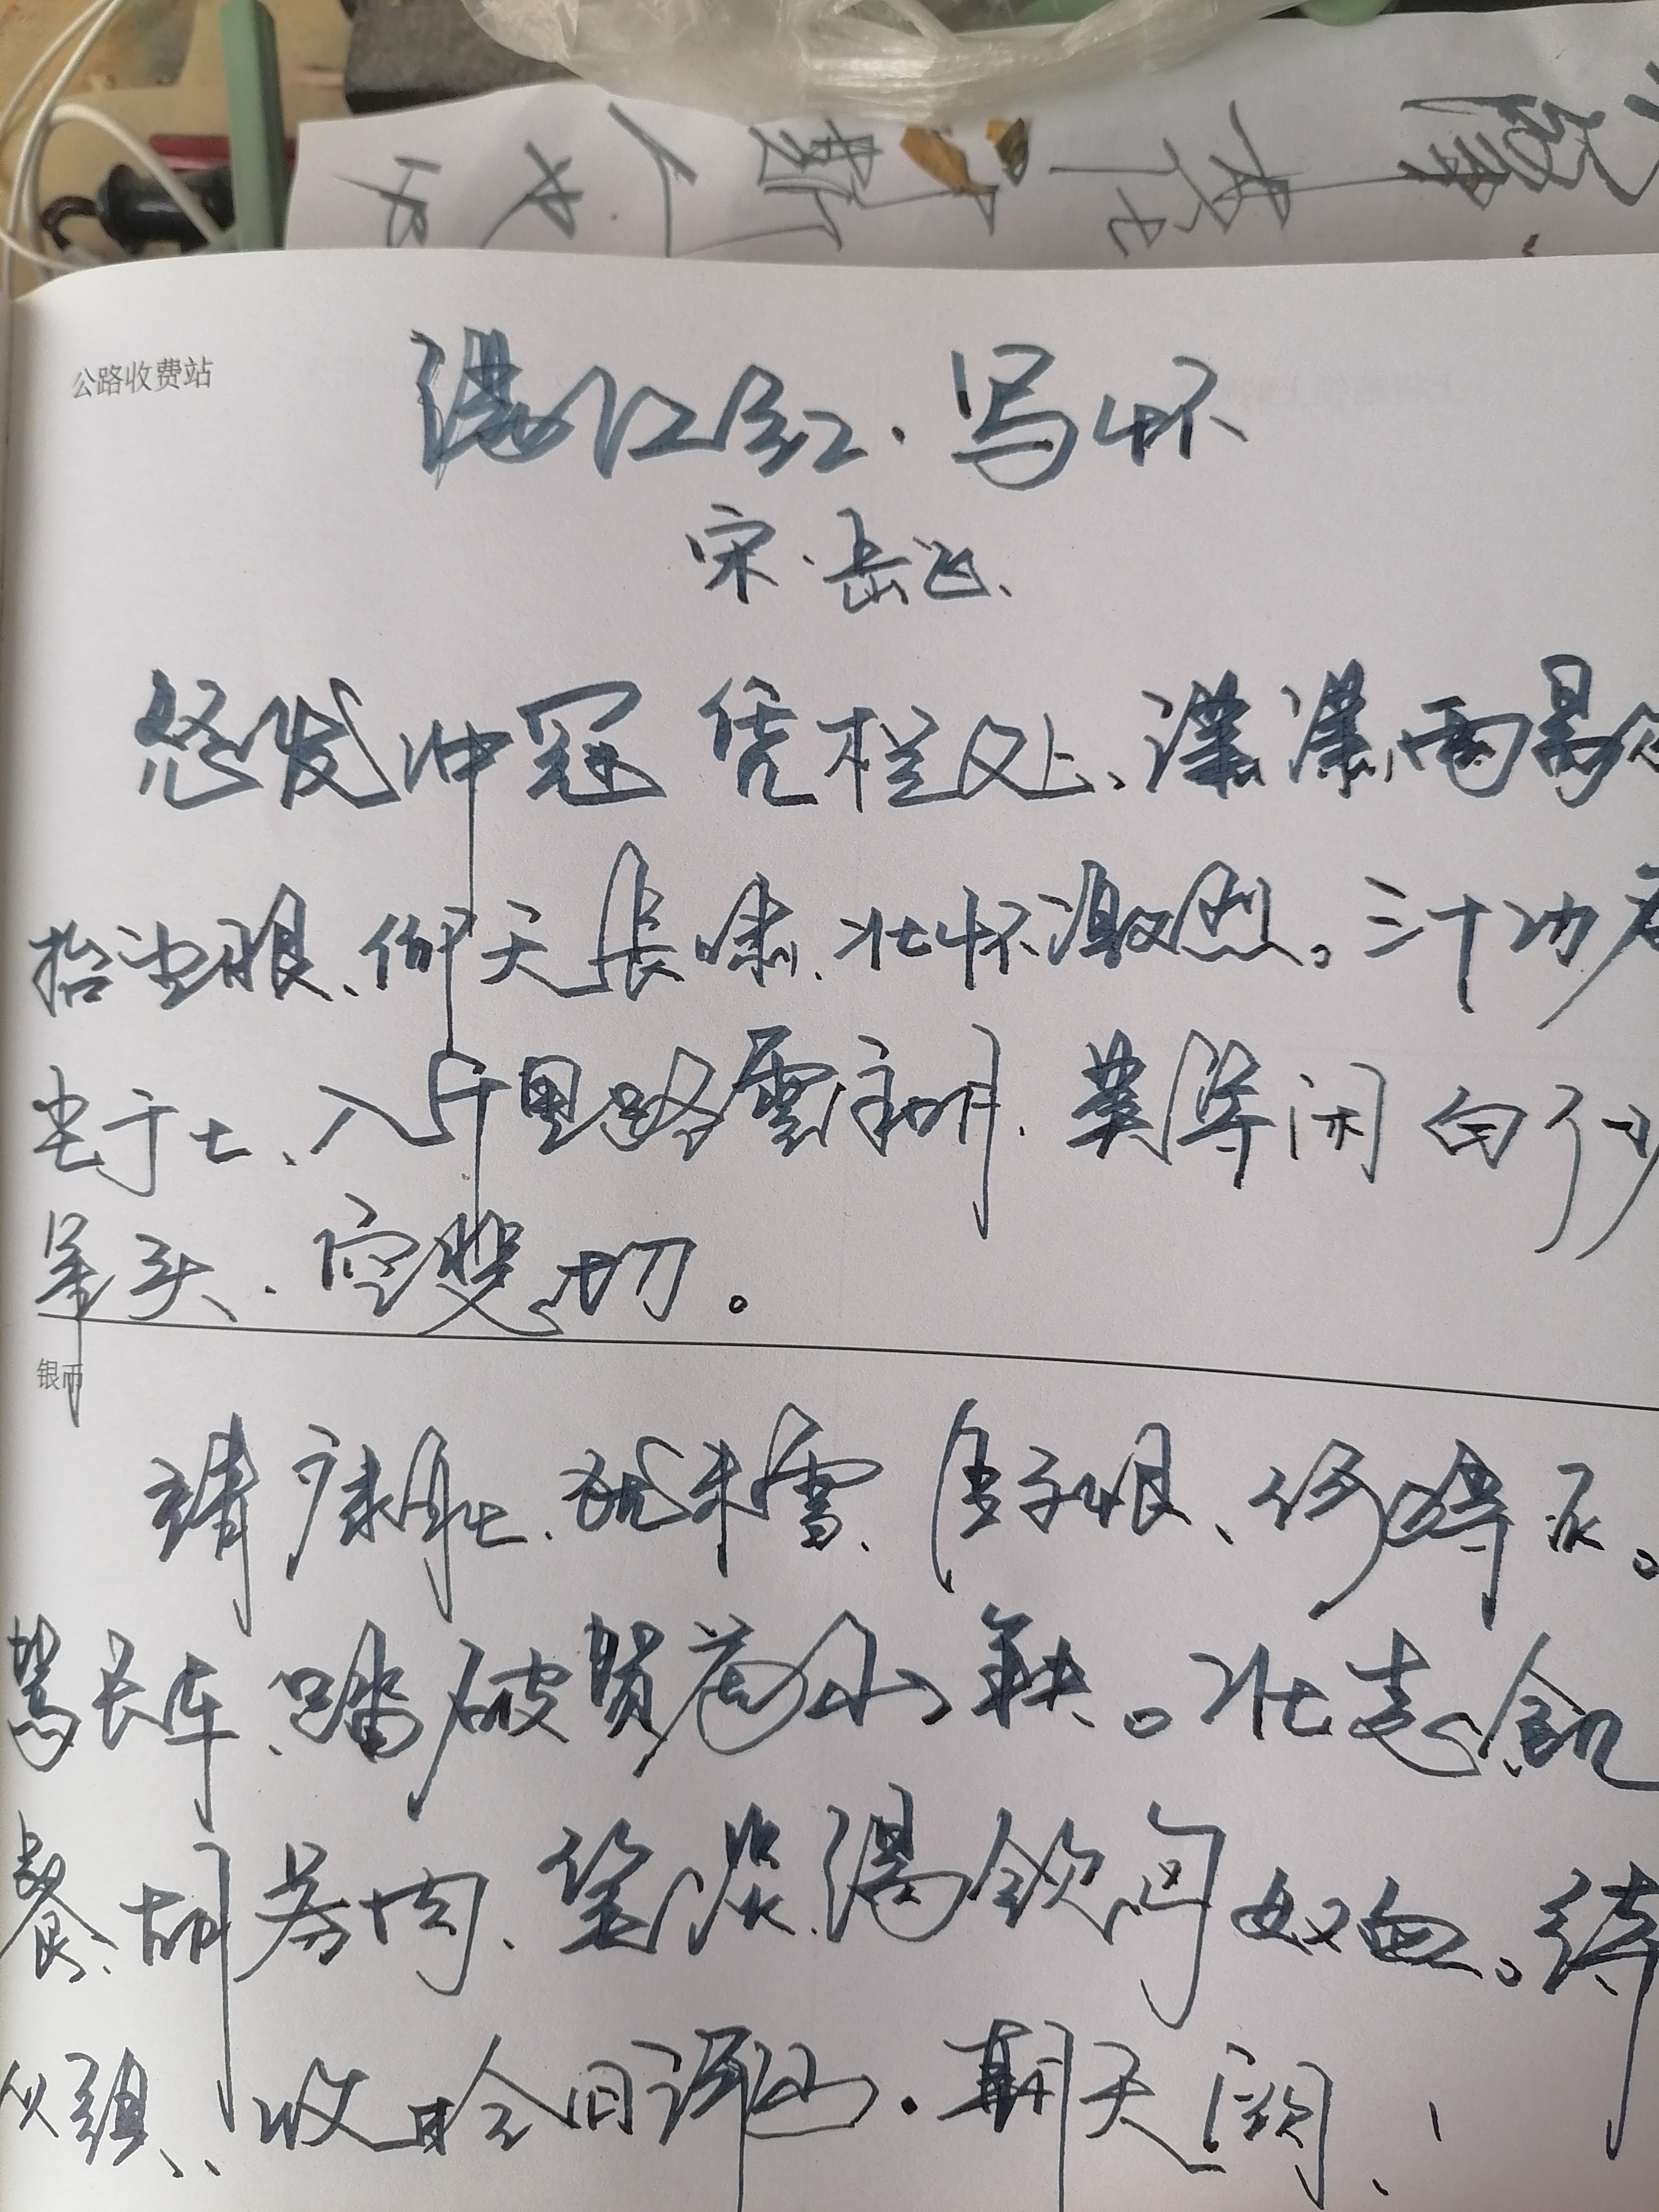 公路收费站
满江红·写怀
宋·岳飞
怒发冲冠 凭栏处、潇潇雨
抬望眼、仰天长啸、壮怀激烈。三十功名
尘与土、八千里路雲和月.莫等闲 白了少
年头、空悲切。
银币
靖康耻、犹未雪、臣子恨、何时灭。
驾长车、踏破贺兰山缺。壮志飢
餐胡虏肉、笑谈渴饮匈奴血。待
从头、收拾旧河山.朝天阙、